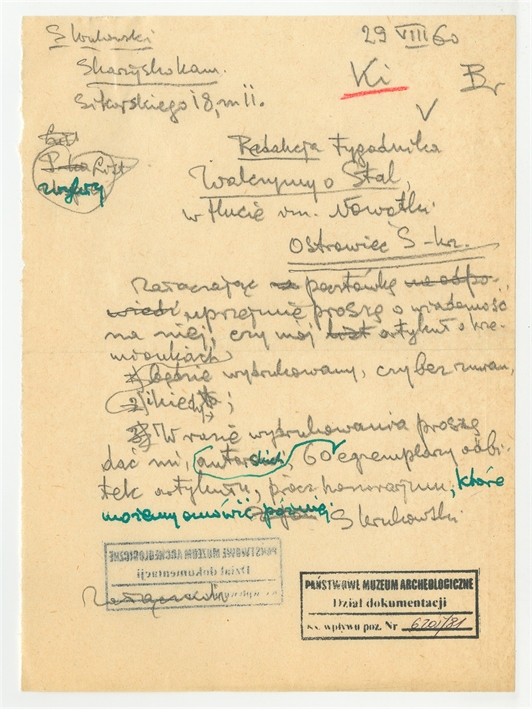 S Krukowski
Skarżysko Kam.
Sikorskiego 18, m 11.
29 VIII 60
Ki
Br
List
wysłany
Redakcja tygodnika
Walczymy o Stal,
w Hucie im. Nowotki
Ostrowiec Ś-krz.
Załączając pocztówkę na odpo-
wiedź uprzejmie proszę o wiadomość
na niej, czy mój list artykuł o krze-
mionkach
1) będzie wydrukowany, czy bez zmian,
2) i kiedy;
3) W razie wydrukowania proszę
dać mi, autorskich, 60 egzemplarzy odbi-
tek artykułu, prócz honorarjum, które
możemy omówić później.
S Krukowski
PAŃSTWOWE MUZEUM ARCHEOLOGICZNE
Dział dokumentacji
ks. wpływu poz. Nr
Załącznik
PAŃSTWOWE MUZEUM ARCHEOLOGICZNE
Dział dokumentacji
ks. wpływu poz. Nr 6201/81